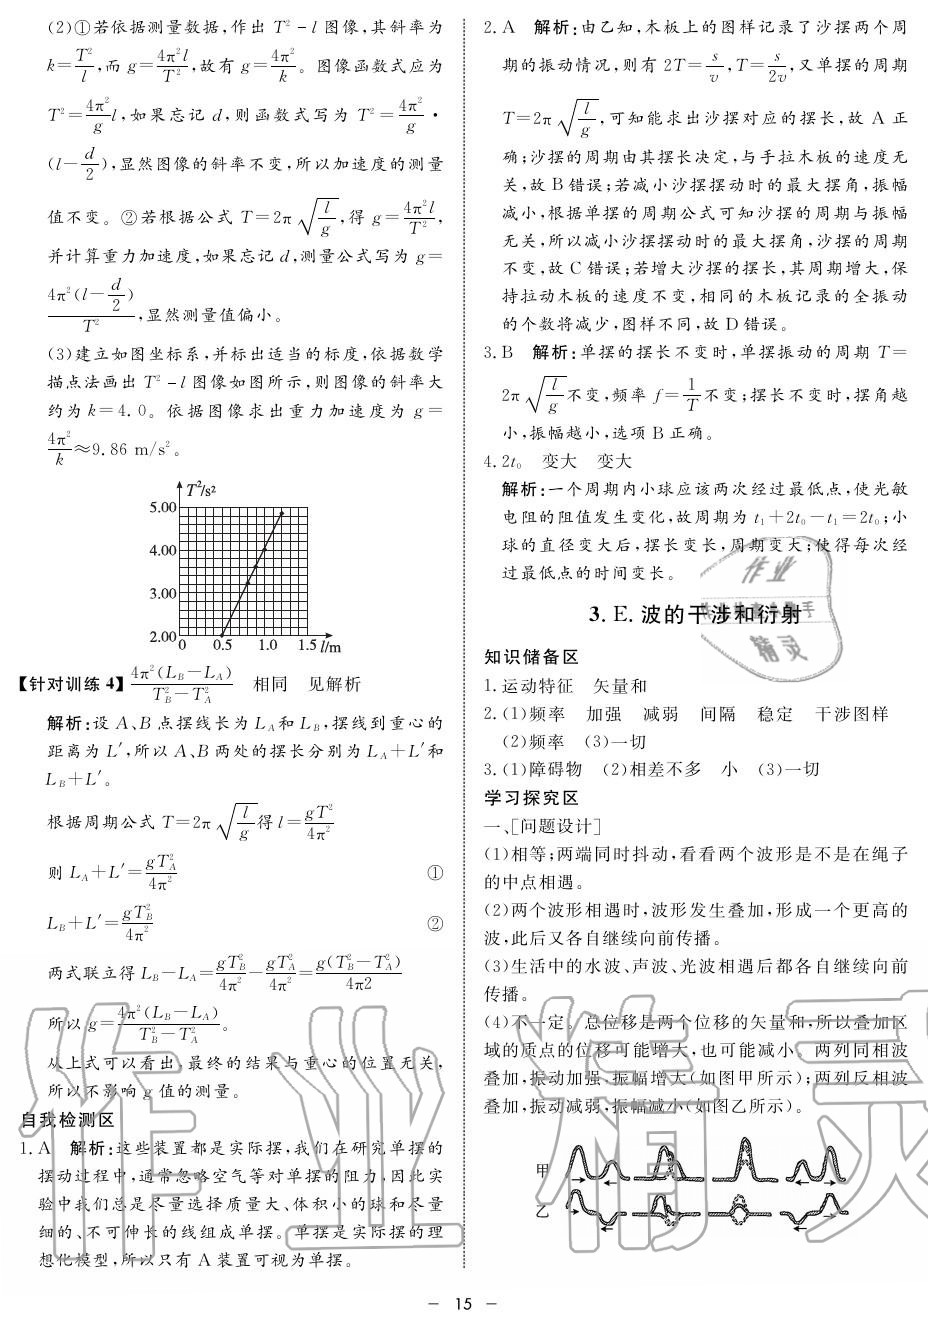 (2)①若依据测量数据,作出 T²-l 图像,其斜率为
k=T²/l,而 g=4π²l/T²,故有 g=4π²/k。图像函数式应为
T²=4π²/g l,如果忘记 d,则函数式写为 T²=4π²/g·
(l-d/2),显然图像的斜率不变,所以加速度的测量
值不变。②若根据公式 T=2π√(l/g),得 g=4π²l/T²,
并计算重力加速度,如果忘记 d,测量公式写为 g=
4π²(l-d/2)/T²,显然测量值偏小。
(3)建立如图坐标系,并标出适当的标度,依据数学
描点法画出 T²-l 图像如图所示,则图像的斜率大
约为 k=4.0。依据图像求出重力加速度为 g=
4π²/k≈9.86 m/s²。
T²/s²
5.00
4.00
3.00
2.00
0 0.5 1.0 1.5 l/m
【针对训练 4】4π²(L_B-L_A)/(T_B²-T_A²) 相同 见解析
解析:设 A、B 点摆线长为 L_A 和 L_B,摆线到重心的
距离为 L′,所以 A、B 两处的摆长分别为 L_A+L′和
L_B+L′。
根据周期公式 T=2π√(l/g)得 l=gT²/4π²
则 L_A+L′=gT_A²/4π² ①
L_B+L′=gT_B²/4π² ②
两式联立得 L_B-L_A=gT_B²/4π²-gT_A²/4π²=g(T_B²-T_A²)/4π2
所以 g=4π²(L_B-L_A)/(T_B²-T_A²)。
从上式可以看出,最终的结果与重心的位置无关,
所以不影响 g 值的测量。
自我检测区
1.A 解析:这些装置都是实际摆,我们在研究单摆的
摆动过程中,通常忽略空气等对单摆的阻力,因此实
验中我们总是尽量选择质量大、体积小的球和尽量
细的、不可伸长的线组成单摆。单摆是实际摆的理
想化模型,所以只有 A 装置可视为单摆。
2.A 解析:由乙知,木板上的图样记录了沙摆两个周
期的振动情况,则有 2T=s/v,T=s/2v,又单摆的周期
T=2π√(l/g),可知能求出沙摆对应的摆长,故 A 正
确;沙摆的周期由其摆长决定,与手拉木板的速度无
关,故 B 错误;若减小沙摆摆动时的最大摆角,振幅
减小,根据单摆的周期公式可知沙摆的周期与振幅
无关,所以减小沙摆摆动时的最大摆角,沙摆的周期
不变,故 C 错误;若增大沙摆的摆长,其周期增大,保
持拉动木板的速度不变,相同的木板记录的全振动
的个数将减少,图样不同,故 D 错误。
3.B 解析:单摆的摆长不变时,单摆振动的周期 T=
2π√(l/g)不变,频率 f=1/T不变;摆长不变时,摆角越
小,振幅越小,选项 B 正确。
4.2t₀ 变大 变大
解析:一个周期内小球应该两次经过最低点,使光敏
电阻的阻值发生变化,故周期为 t₁+2t₀-t₁=2t₀;小
球的直径变大后,摆长变长,周期变大;使得每次经
过最低点的时间变长。
3.E.波的干涉和衍射
知识储备区
1.运动特征 矢量和
2.(1)频率 加强 减弱 间隔 稳定 干涉图样
(2)频率 (3)一切
3.(1)障碍物 (2)相差不多 小 (3)一切
学习探究区
一、[问题设计]
(1)相等;两端同时抖动,看看两个波形是不是在绳子
的中点相遇。
(2)两个波形相遇时,波形发生叠加,形成一个更高的
波,此后又各自继续向前传播。
(3)生活中的水波、声波、光波相遇后都各自继续向前
传播。
(4)不一定。总位移是两个位移的矢量和,所以叠加区
域的质点的位移可能增大,也可能减小。两列同相波
叠加,振动加强,振幅增大(如图甲所示);两列反相波
叠加,振动减弱,振幅减小(如图乙所示)。
甲
乙
作业
精灵
作业精灵
- 15 -